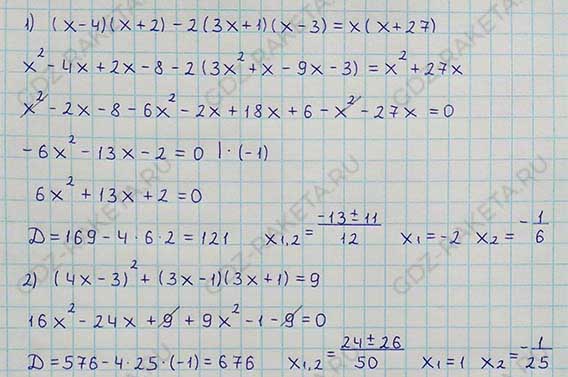 1) (x-4)(x+2)-2(3x+1)(x-3)=x(x+27)
x²-4x+2x-8-2(3x²+x-9x-3)=x²+27x
x²-2x-8-6x²-2x+18x+6-x²-27x=0
-6x²-13x-2=0 |·(-1)
6x²+13x+2=0
D=169-4·6·2=121 x₁,₂=(-13±11)/12 x₁=-2 x₂=-1/6
2) (4x-3)²+(3x-1)(3x+1)=9
16x²-24x+9+9x²-1-9=0
D=576-4·25·(-1)=676 x₁,₂=(24±26)/50 x₁=1 x₂=-1/25
GDZ-RAKETA.RU
GDZ-RAKETA.RU
GDZ-RAKETA.RU
GDZ-RAKETA.RU